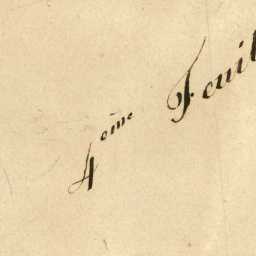 4eme Feuil